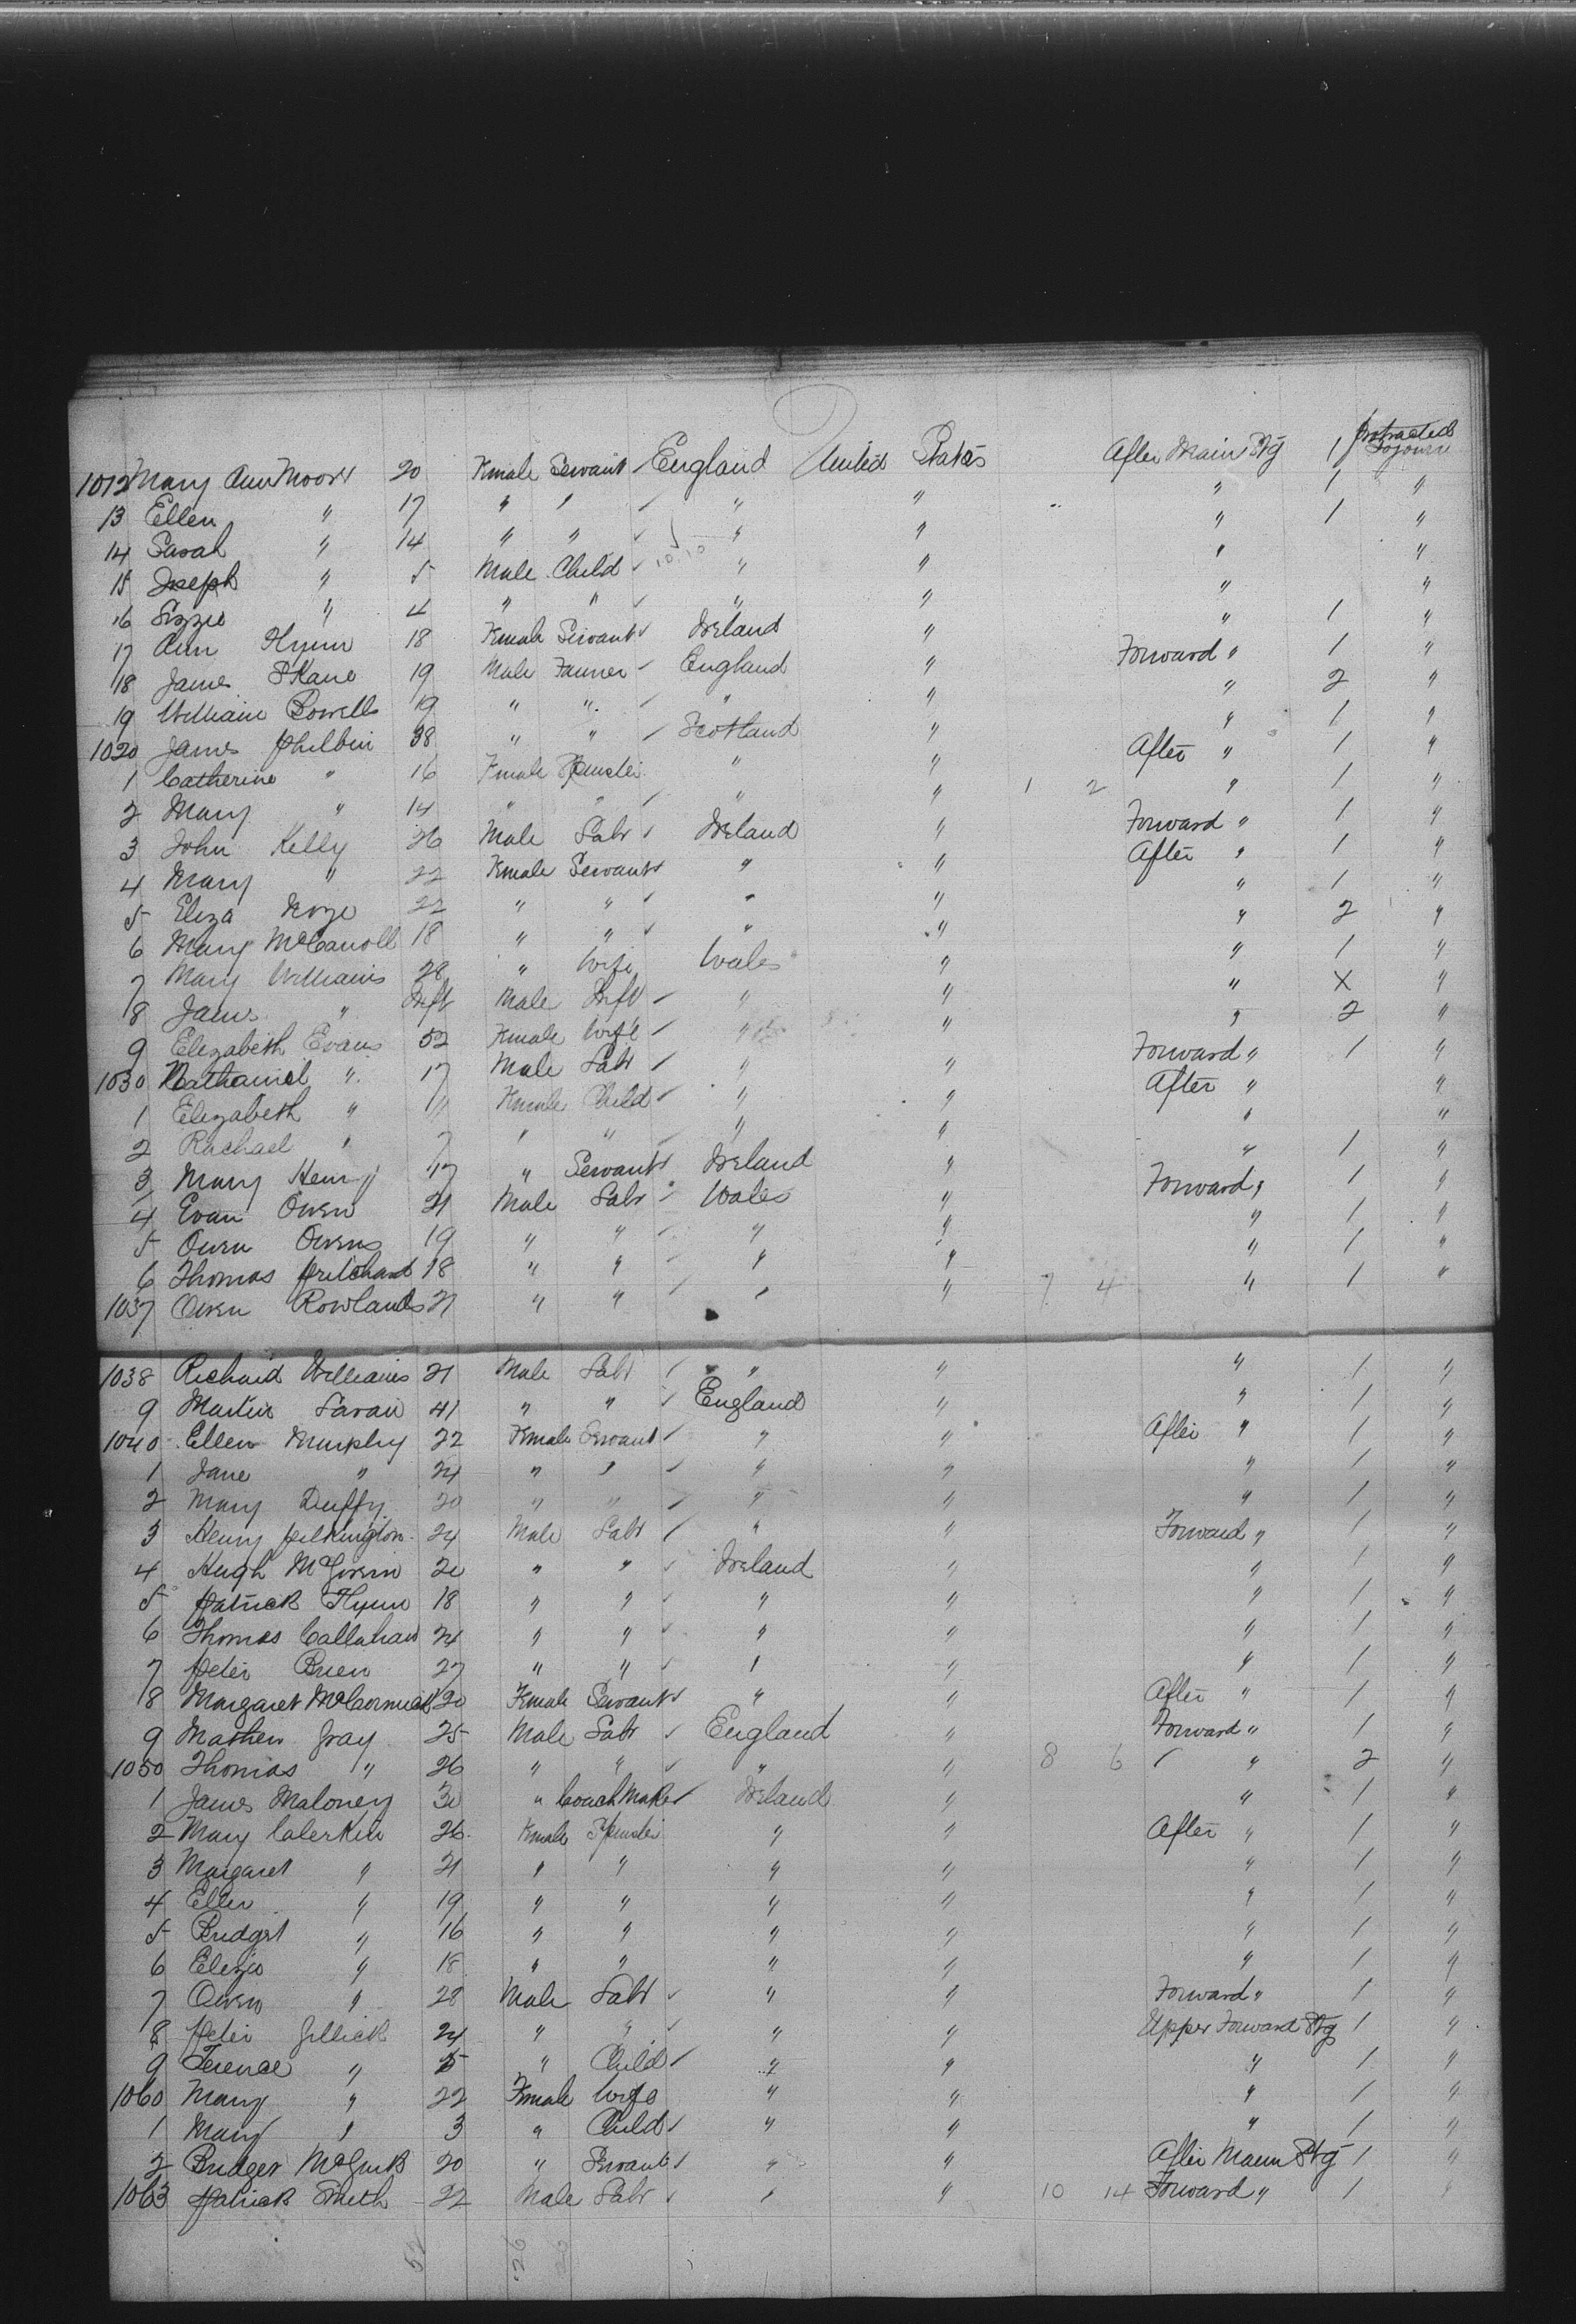 1012 Mary Ann Moore 20 Female Servant England United States After Main Stg 1 protracted Sojourn
13 Ellen " 17 " " " " " 1 "
14 Sarah " 14 " " " " " 1 "
15 Joseph " 5 Male Child " " " "
16 Lizzie " 4 " " " " " "
17 Ann Flynn 18 Female Servant Ireland " " 1 "
18 James Kane 19 Male Farmer England " Forward " 1 "
19 William Bowells 19 " " " " " 2 "
1020 James Philbin 38 " " Scotland " " 1 "
1 Catherine " 16 Female Spinster " " After " 1 "
2 Mary " 14 " " " " 1 2 " 1 "
3 John Kelly 26 Male Labr Ireland " Forward " 1 "
4 Mary " 22 Female Servant " " After " 1 "
5 Eliza 22 " " " " " 1 "
6 Mary McCarroll 18 " " " " " 2 "
7 Mary Williams 28 " Wife Wales " " 1 "
8 James " Inft Male Inft " " " X "
9 Elizabeth Evans 52 Female Wife " " " 2 "
1030 Nathaniel " 17 Male Labr " " Forward " 1 "
1 Elizabeth " 11 Female Child " " After " "
2 Rachael " 7 " " " " " "
3 Mary Henry 17 " Servant Ireland " " 1 "
4 Evan Owen 21 Male Labr Wales " Forward " 1 "
5 Owen Owens 19 " " " " " 1 "
6 Thomas Pritchard 18 " " " " " 1 "
1037 Owen Rowlands 21 " " " " 7 4 " 1 "
1038 Richard Williams 21 Male Labr " " " 1 "
9 Martin Savan 41 " " England " " 1 "
1040 Ellen Murphy 22 Female Servant " " After " 1 "
1 Jane " 24 " " " " " 1 "
2 Mary Duffy 20 " " " " " 1 "
3 Henry Pilkington 24 Male Labr " " Forward " 1 "
4 Hugh McGivern 20 " " Ireland " " 1 "
5 Patrick Flynn 18 " " " " " 1 "
6 Thomas Callahan 24 " " " " " 1 "
7 Peter Brien 27 " " " " " 1 "
8 Margaret McCormick 20 Female Servant " " After " 1 "
9 Mathew Gray 25 Male Labr England " Forward " 1 "
1050 Thomas " 26 " " " " 8 6 " 2 "
1 James Maloney 30 " Coach Maker Ireland " " 1 "
2 Mary Calerkin 26 Female Spinster " " After " 1 "
3 Margaret " 21 " " " " " 1 "
4 Ellen " 19 " " " " " 1 "
5 Bridget " 16 " " " " " 1 "
6 Eliza " 18 " " " " " 1 "
7 Owen " 28 Male Labr " " Forward " 1 "
8 Peter Gillick 24 " " " " Upper Forward Stg 1 "
9 Terence " 5 " Child " " " 1 "
1060 Mary " 22 Female Wife " " " 1 "
1 Mary " 3 " Child " " " 1 "
2 Bridget McGurk 20 " Servant " " After Main Stg 1 "
1063 Patrick Smith 22 Male Labr " " 10 14 Forward " 1 "